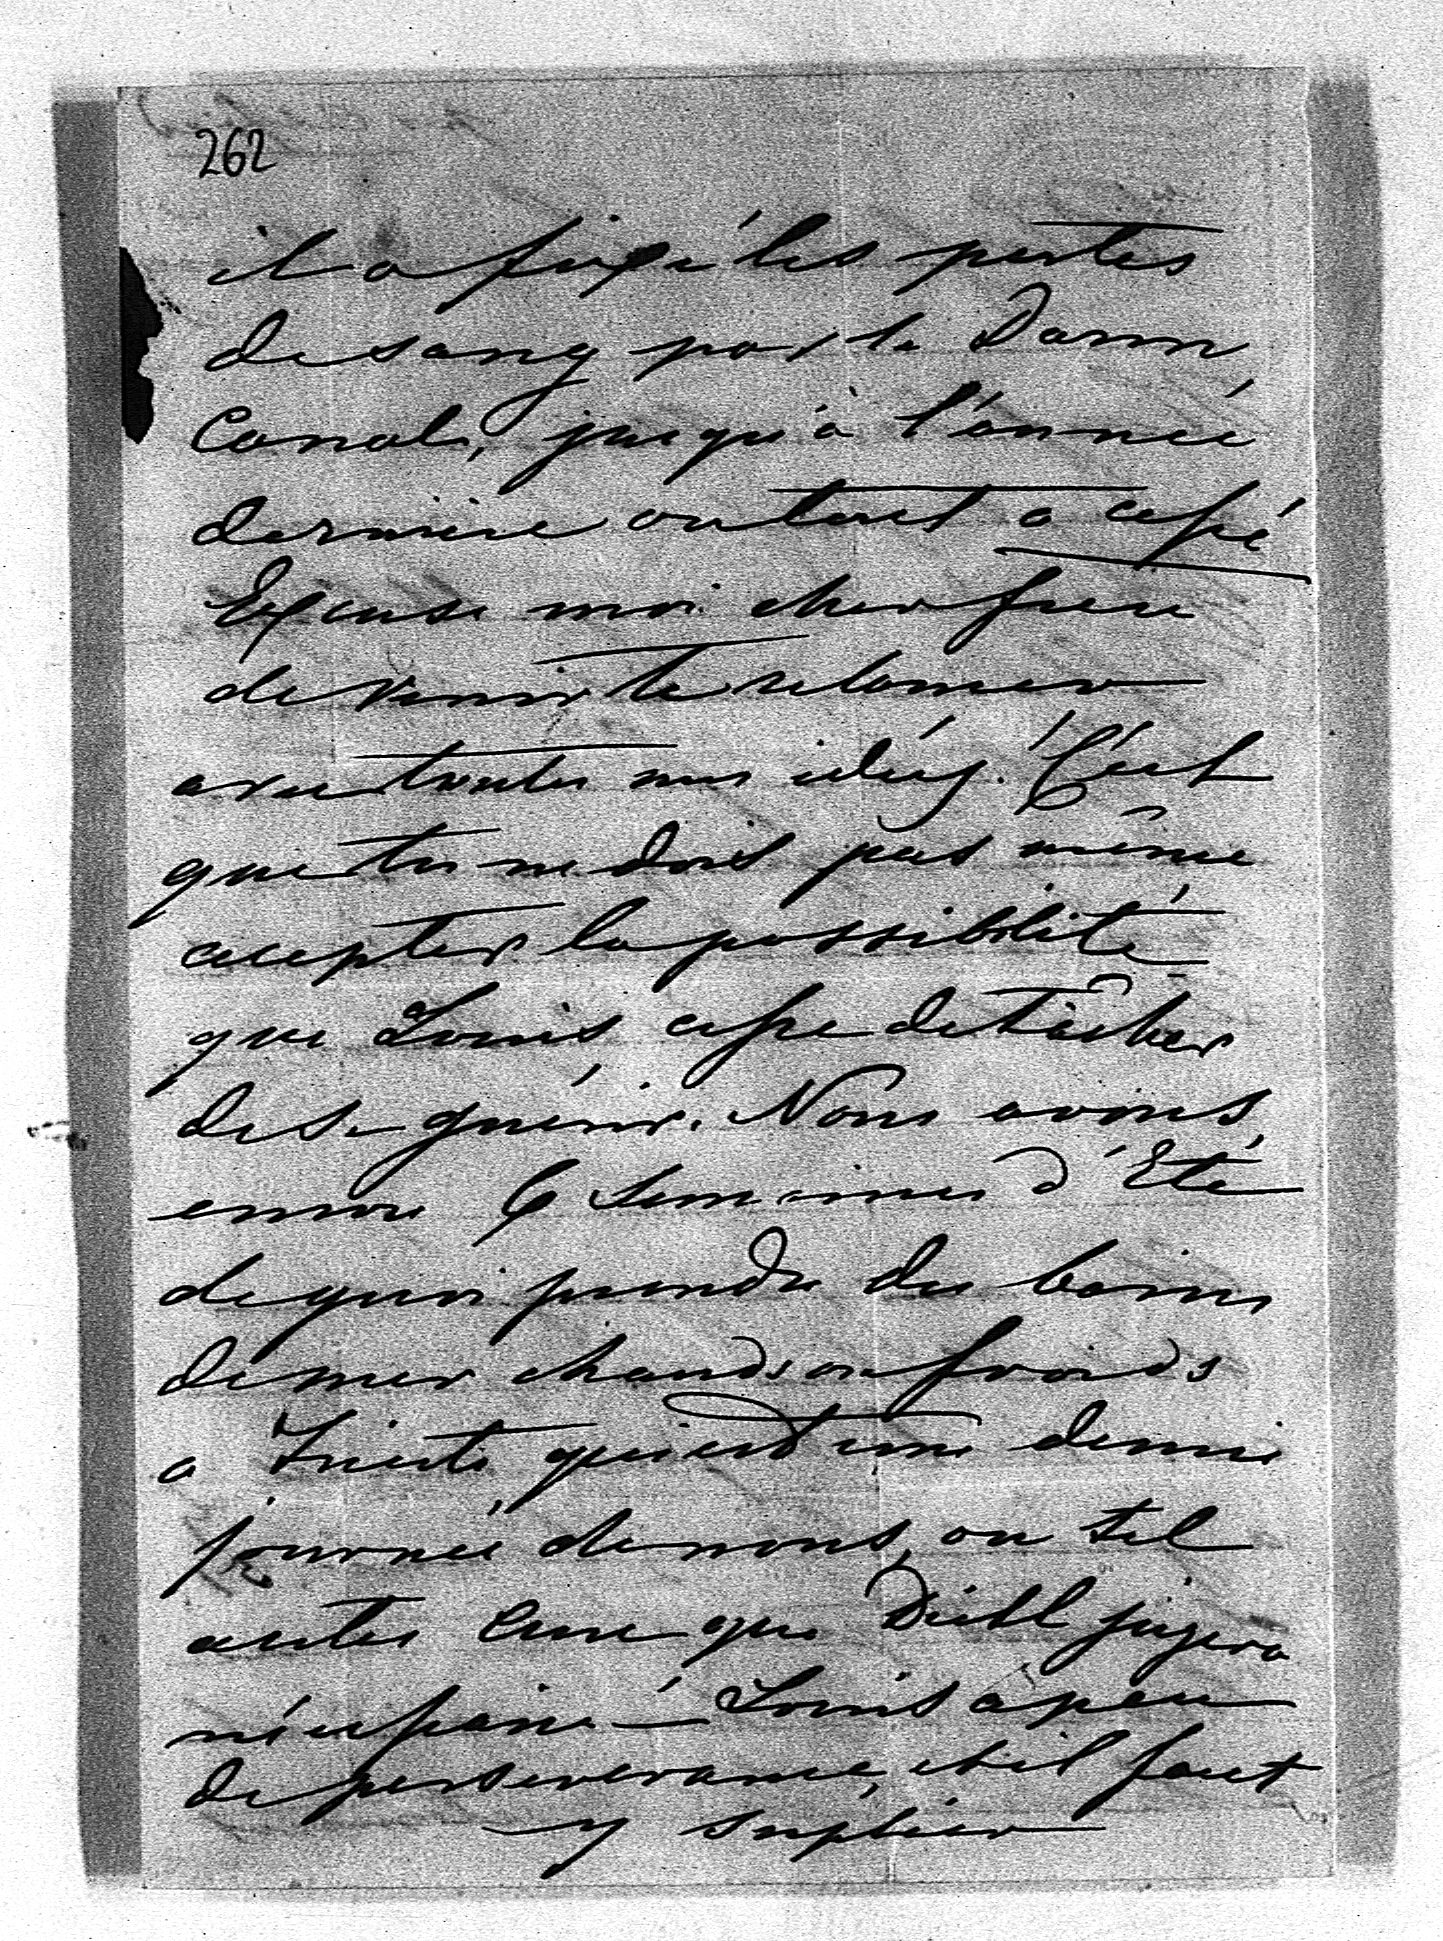 262
il a fixé les pertes
de sang par le Darm
Canal, jusqu'à l'année
dernière ou tout a cessé
Excuse moi cher frere
de venir te
avec toutes mes idées. C'est
que tu ne dois pas même
accepter la possibilité
que Louis cesse de tâcher
de se guérir. Nous avons
encore 6 semaines d'Eté
de quoi prendre des bains
de mer chauds ou froids
a Trieste qui est une demie
journée de nous, ou tel
autre Cure que Diehl jugera
nécessaire — Louis a peu
de perseverance, et il faut
y supléer